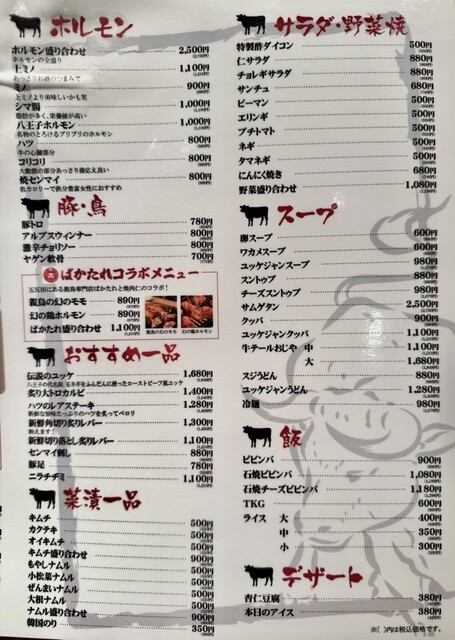 ホルモン
ホルモン盛り合わせ 2,500円
ホルモンの全盛り
上ミノ 1,100円
あっさりお酒のつまみで
ミノ 900円
上ミノより美味しいかも笑
シマ腸 1,000円
脂肪が多く、栄養価が高い
八王子ホルモン 1,000円
名物のとろけるプリプリのホルモン
ハツ 800円
牛の心臓部分
コリコリ 800円
大動脈の部分あっさり歯応え良い
焼センマイ 800円
低カロリーで鉄分豊富女性におすすめ
豚・鳥
豚トロ 780円
アルプスウィンナー 800円
激辛チョリソー 800円
ヤゲン軟骨 700円
ばかたれコラボメニュー
五反田にある親鳥専門店ばかたれと焼肉仁のコラボ!
親鳥の幻のモモ 890円
幻の鶏ホルモン 890円
ばかたれ盛り合わせ 1,100円
親鳥の幻のモモ 幻の鶏ホルモン
おすすめ一品
伝説のユッケ 1,680円
八王子の代名詞、玉ネギをふんだんに使ったローストビーフ風ユッケ
炙り大トロカルビ 1,400円
ハツのレアステーキ 1,280円
新鮮な甘味たっぷりのハツを炙ってペロリ
新鮮角切り炙りレバー 1,300円
映えます!
新鮮切り落とし炙りレバー 1,100円
センマイ刺し 880円
豚足 780円
ニラチヂミ 1,100円
菜漬一品
キムチ 500円
カクテキ 500円
オイキムチ 500円
キムチ盛り合わせ 900円
もやしナムル 500円
小松菜ナムル 500円
ぜんまいナムル 500円
大根ナムル 500円
ナムル盛り合わせ 900円
韓国のり 350円
サラダ・野菜焼
特製酢ダイコン 500円
仁サラダ 880円
チョレギサラダ 880円
サンチュ 680円
ピーマン 500円
エリンギ 500円
プチトマト 500円
ネギ 500円
タマネギ 500円
にんにく焼き 680円
野菜盛り合わせ 1,080円
スープ
卵スープ 600円
ワカメスープ 600円
ユッケジャンスープ 980円
スントゥフ 880円
チーズスントゥフ 980円
サムゲタン 2,500円
クッパ 900円
ユッケジャンクッパ 1,100円
牛テールおじや 中 1,100円
大 1,680円
スジうどん 880円
ユッケジャンうどん 1,280円
冷麺 980円
飯
ビビンバ 900円
石焼ビビンバ 1,080円
石焼チーズビビンバ 1,180円
TKG 600円
ライス 大 400円
中 350円
小 300円
デザート
杏仁豆腐 380円
本日のアイス 380円
※( )内は税込価格です。